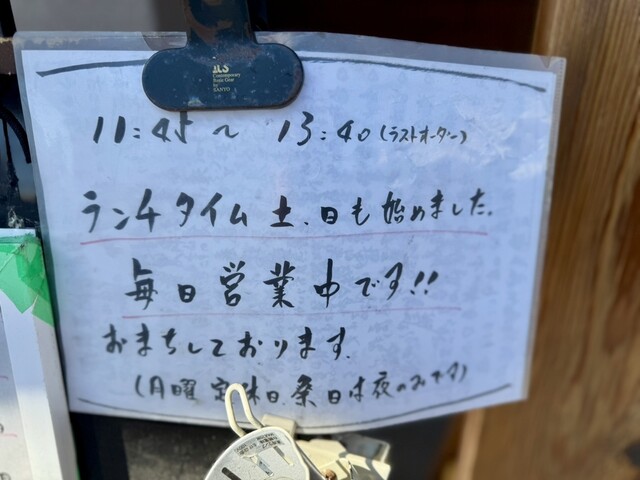 11:45～13:40(ラストオーダー)
ランチタイム土、日も始めました。
毎日営業中です!!
おまちしております。
(月曜定休日祭日は夜のみです)